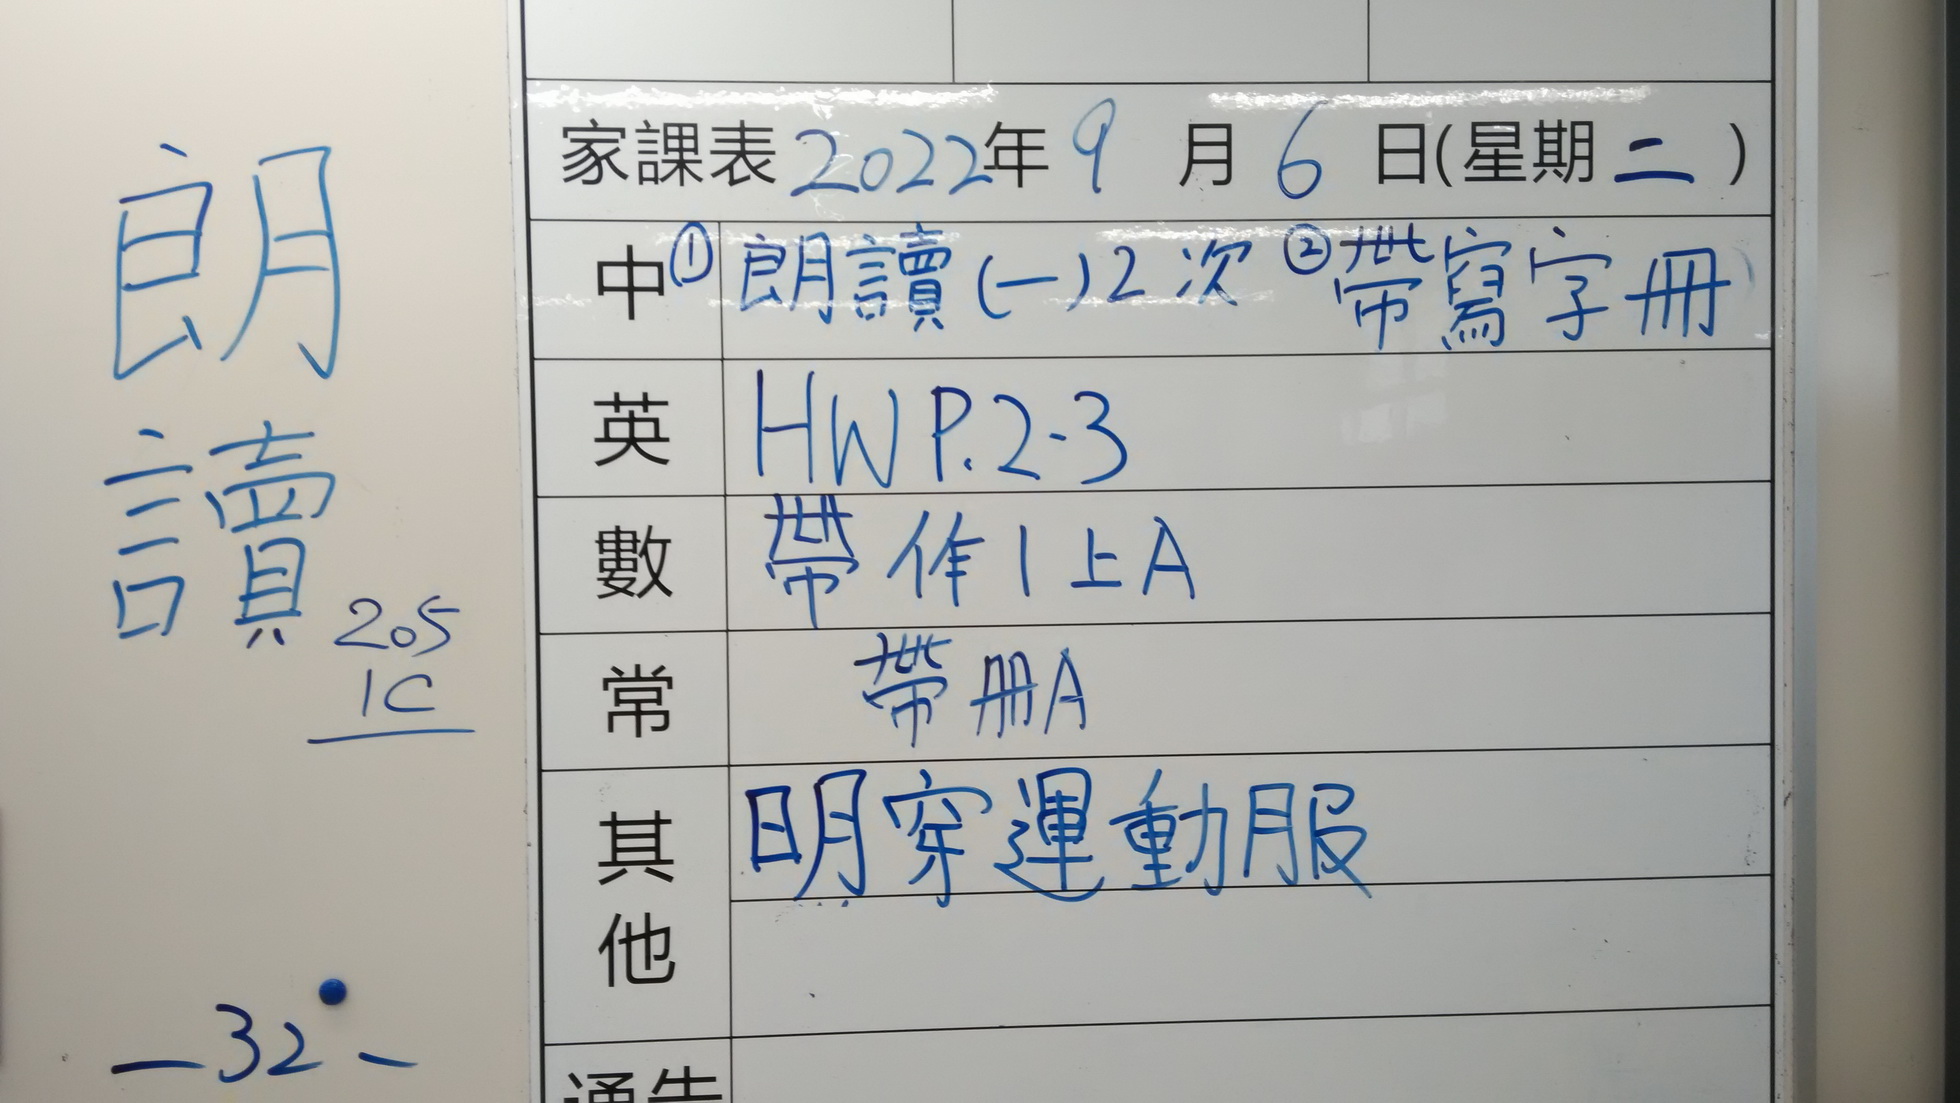 家課表2022年9月6日(星期二)
中 ①朗讀(一)2次 ②帶寫字冊
英 HW P.2-3
數 帶作1上A
常 帶冊A
其他 明穿運動服
通告
朗
讀
205
1C
—32—